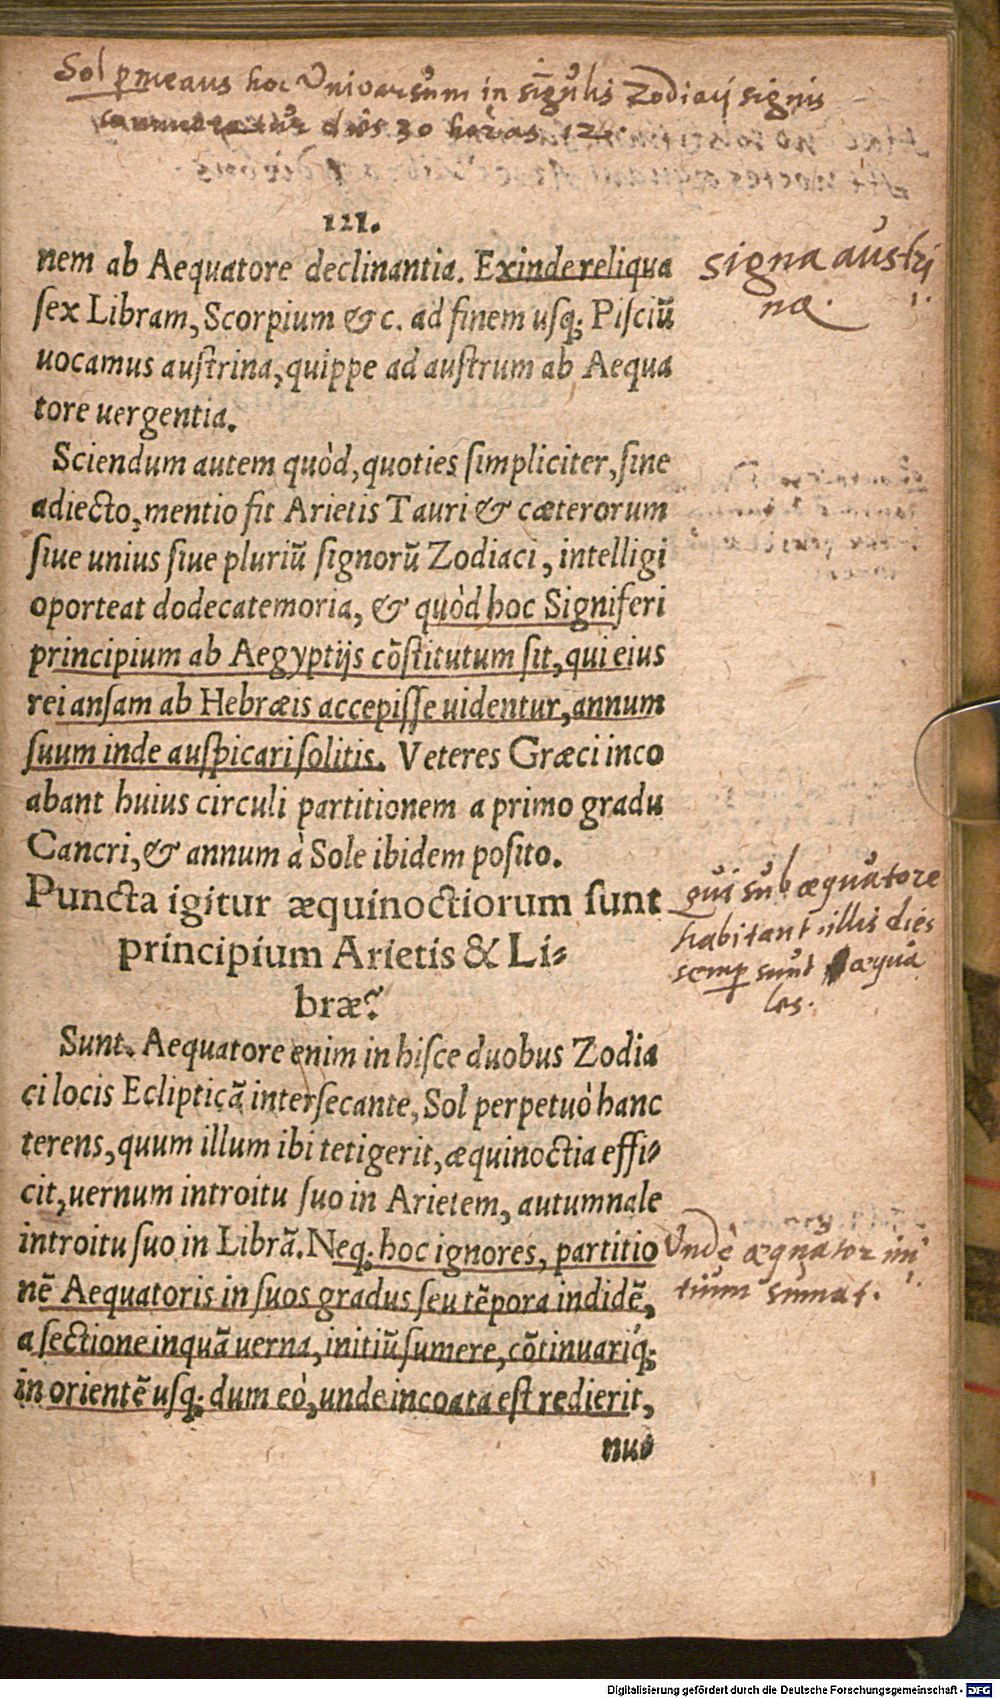 Sol pmeans hoc Universum in sīgulis Zodiaci signis
dies 30 horas 12.
III.
nem ab Aequatore declinantia. Exinde reliqua
ſex Libram, Scorpium & c. ad finem uſq; Piſciū
uocamus auſtrina, quippe ad auſtrum ab Aequa
tore uergentia.
signa austri
na.
Sciendum autem quòd, quoties ſimpliciter, ſine
adiecto, mentio fit Arietis Tauri & cæterorum
ſiue unius ſiue pluriū ſignorū Zodiaci, intelligi
oporteat dodecatemoria, & quòd hoc Signiferi
principium ab Aegyptijs cōſtitutum ſit, qui eius
rei anſam ab Hebræis accepiſſe uidentur, annum
ſuum inde auſpicari ſolitis. Veteres Græci inco
abant huius circuli partitionem a primo gradu
Cancri, & annum à Sole ibidem poſito.
Puncta igitur æquinoctiorum ſunt
principium Arietis & Li-
bræ?
Qui sub æquatore
habitant illis dies
semp sunt æqua
les.
Sunt. Aequatore enim in hiſce duobus Zodia
ci locis Eclipticā interſecante, Sol perpetuò hanc
terens, quum illum ibi tetigerit, æquinoctia effi-
cit, uernum introitu ſuo in Arietem, autumnale
introitu ſuo in Librā. Neq; hoc ignores, partitio
nē Aequatoris in ſuos gradus ſeu tēpora indidē,
a ſectione inquā uerna, initiū ſumere, cōtinuariq́;
in orientē uſq; dum eò, unde incoata eſt redierit,
Undè æquator ini
tium sumat.
nuo